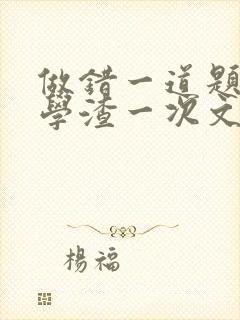 做錯一道題
學渣一次文
楊福